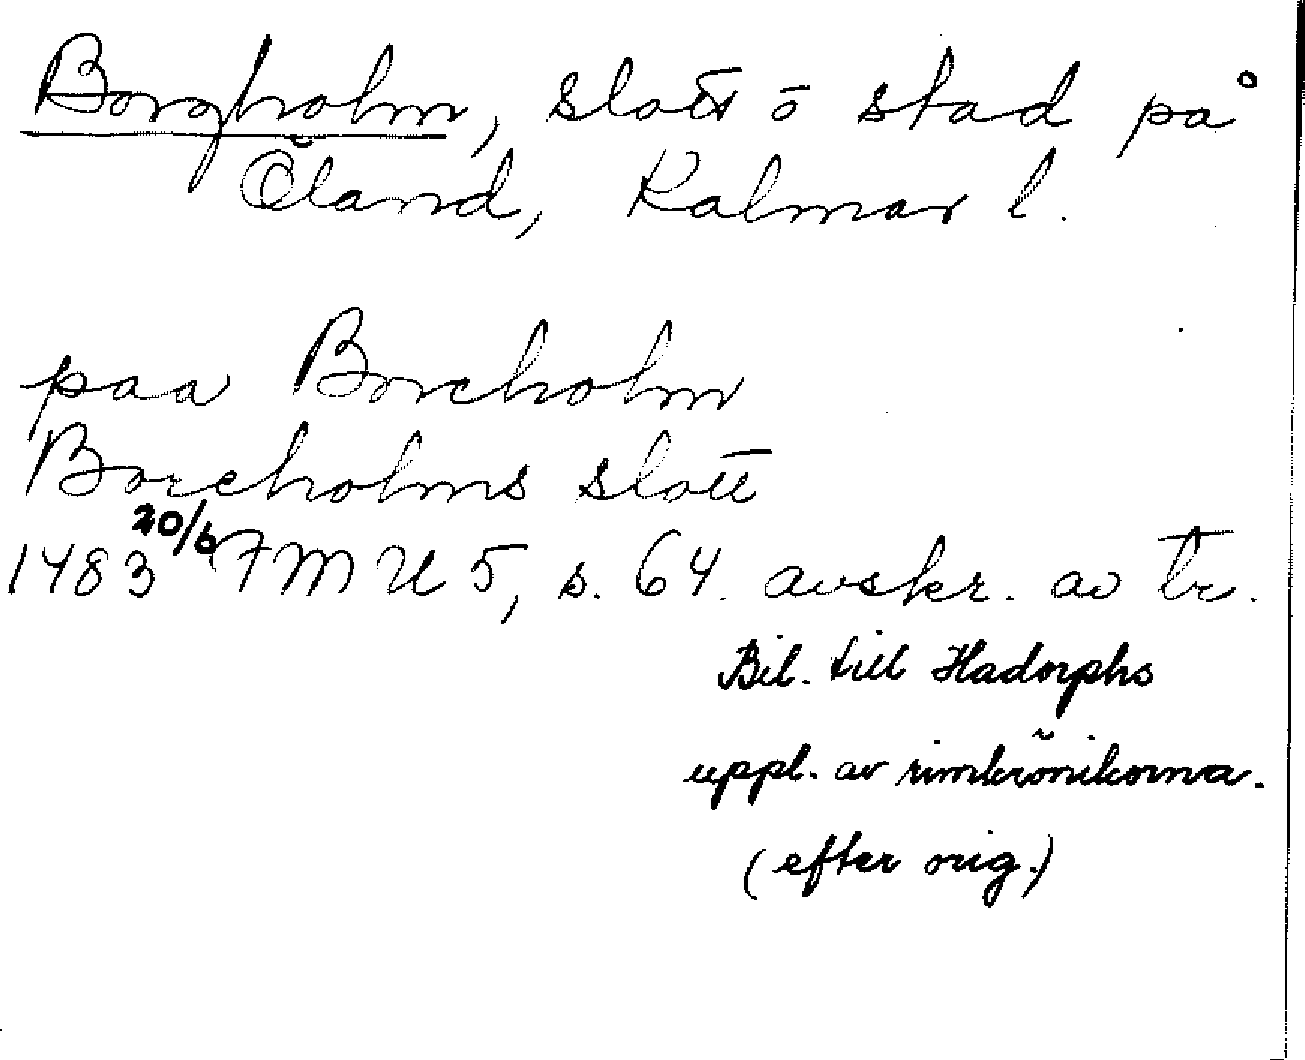 Borgholm, slott o stad på
Öland, Kalmar l.
paa Borcholm
Borcholms slott
1483 20/6 FMU 5, s. 64. avskr. av tr.
Bil. till Hadorphs
uppl. av rimkrönikorna.
(efter orig.)